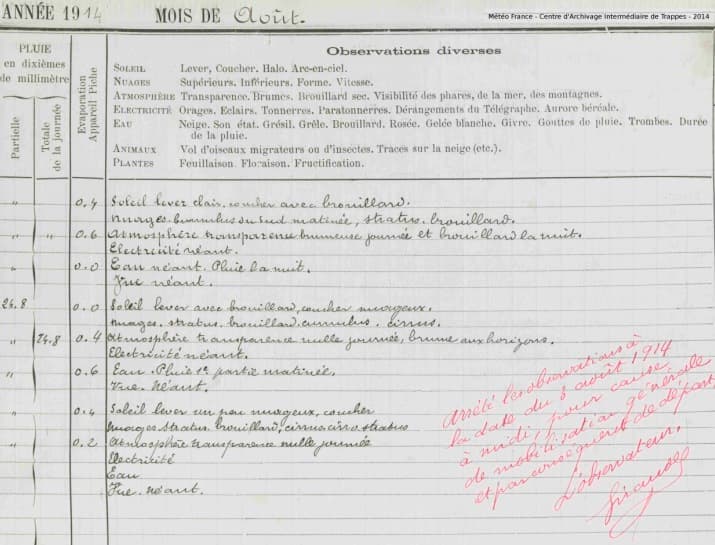 ANNÉE 1914 MOIS DE Août.
Météo France - Centre d'Archivage Intermédiaire de Trappes - 2014
PLUIE
en dixièmes
de millimètre
Partielle
Totale
de la journée
Evaporation
Appareil Piche
Observations diverses
SOLEIL Lever, Coucher. Halo. Arc-en-ciel.
NUAGES Supérieurs. Inférieurs. Forme. Vitesse.
ATMOSPHÈRE Transparence. Brumes. Brouillard sec. Visibilité des phares, de la mer, des montagnes.
ELECTRICITÉ Orages. Eclairs. Tonnerres. Paratonnerres. Dérangements du Télégraphe. Aurore boréale.
EAU Neige. Son état. Grésil. Grêle. Brouillard. Rosée. Gelée blanche. Givre. Gouttes de pluie. Trombes. Durée
de la pluie.
ANIMAUX Vol d'oiseaux migrateurs ou d'insectes. Traces sur la neige (etc.).
PLANTES Feuillaison. Floraison. Fructification.
" 0.4 Soleil lever clair. coucher avec brouillard.
nuages. cumulus du Sud matinée, stratus. brouillard.
" " 0.6 Atmosphère transparence brumeuse journée et brouillard la nuit.
Electricité néant.
" 0.0 Eau néant. Pluie la nuit.
néant.
24.8 0.0 Soleil lever avec brouillard, coucher nuageux.
nuages. stratus. brouillard. cumulus. cirrus.
" 24.8 0.4 Atmosphère transparence nulle journée, brume aux horizons.
Electricité néant.
" 0.6 Eau. Pluie 1e partie matinée.
Néant.
" 0.4 Soleil lever un peu nuageux, coucher
nuages stratus. brouillard, cirrus cirro. stratus
" 0.2 Atmosphère transparence nulle journée
Electricité
Eau
néant.
Arrêté les observations à
la date du 3 août 1914
à midi, pour cause
de mobilisation générale
et par conséquent de départ
L'observateur.